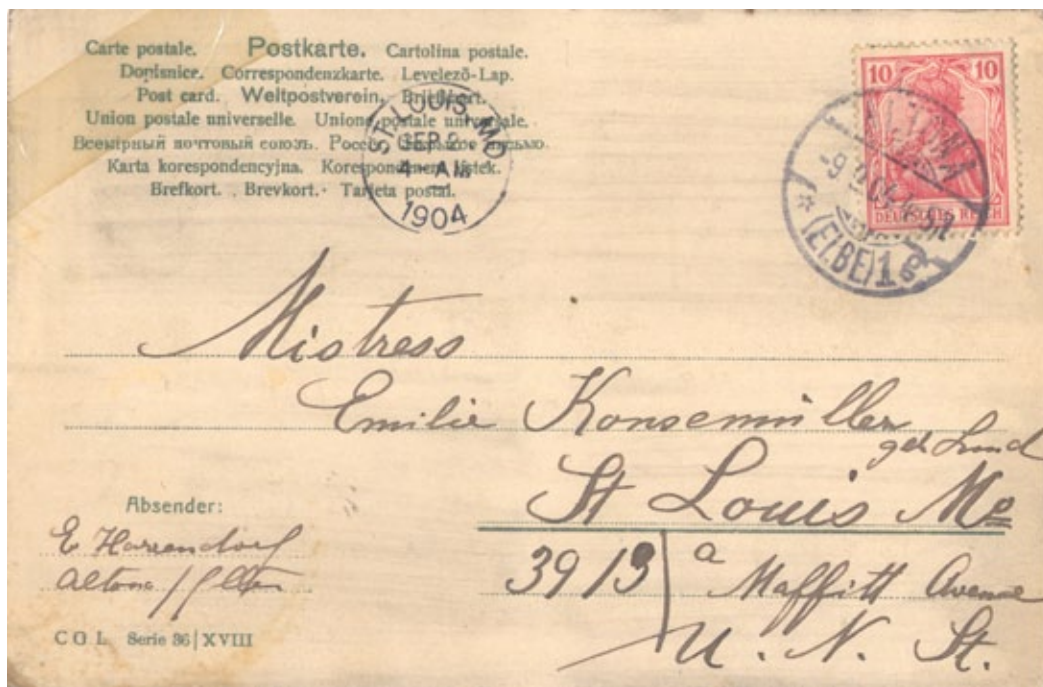 Carte postale. Postkarte. Cartolina postale.
Dopisnice. Correspondenzkarte. Levelező-Lap.
Post card. Weltpostverein. Briefkort.
Union postale universelle. Unione postale universale.
Всемірный почтовый союзъ. Россія. Открытое письмо.
Karta korespondencyjna. Korespondencni listek.
Brefkort. Brevkort. Tarjeta postal.
ST. LOUIS, MO
SEP 2
4 - AM
1904
10 10
DEUTSCHES REICH
ALTONA
(ELBE) 1
Mistress
Emilie Konsemüller
geb Lund
St Louis Mo
Absender:
E Harrendorf
Altona
3913 a Maffitt Avenue
U. N. St.
C O L Serie 36 | XVIII